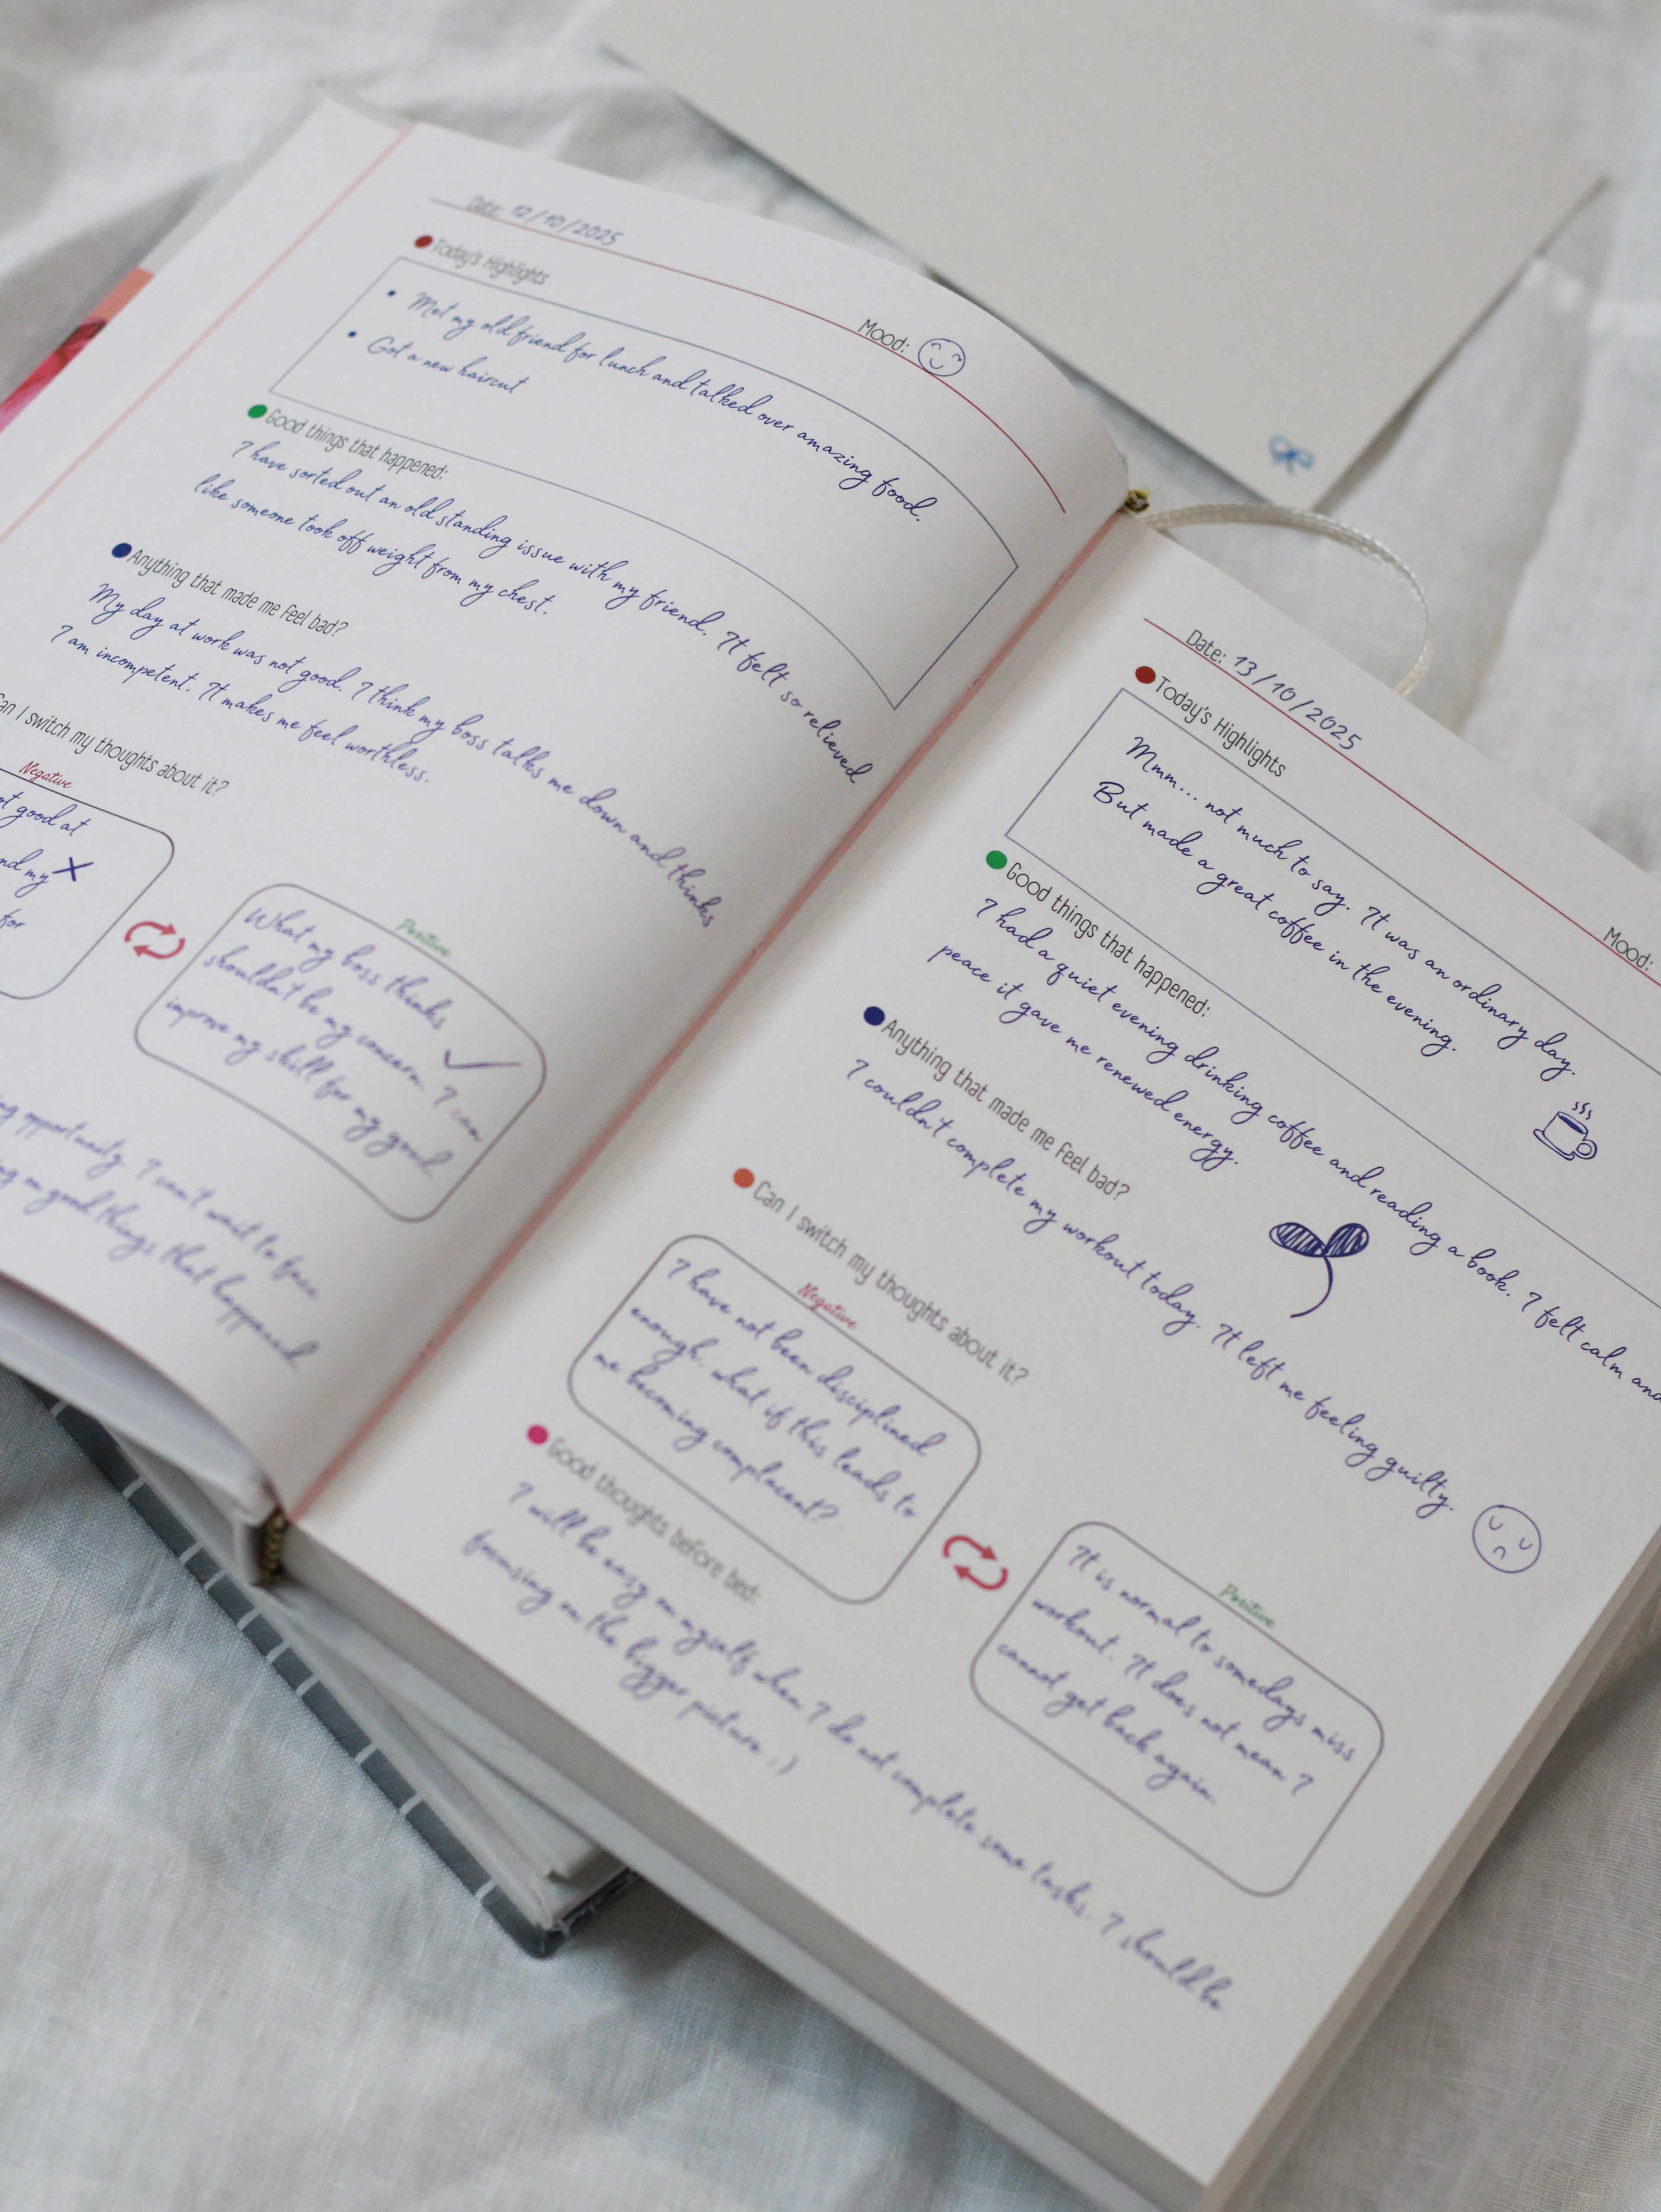 Date: 12/10/2025
Mood:
Today's Highlights
• Met my old friend for lunch and talked over amazing food.
• Got a new haircut
Good things that happened:
I have sorted out an old standing issue with my friend. It felt so relieved
like someone took off weight from my chest.
Anything that made me feel bad?
My day at work was not good. I think my boss talks me down and thinks
I am incompetent. It makes me feel worthless.
an I switch my thoughts about it?
Negative
ot good at
nd my
for
Positive
What my boss thinks
shouldn't be my concern. I can
improve my skill for my good.
ng opportunity. I can't wait to face
ng on good things that happened.
Date: 13/10/2025
Mood:
Today's Highlights
Mmm... not much to say. It was an ordinary day.
But made a great coffee in the evening.
Good things that happened:
I had a quiet evening drinking coffee and reading a book. I felt calm and
peace it gave me renewed energy.
Anything that made me feel bad?
I couldn't complete my workout today. It left me feeling guilty.
Can I switch my thoughts about it?
Negative
I have not been disciplined
enough. what if this leads to
me becoming complacent?
Positive
It is normal to somedays miss
workout. It does not mean I
cannot get back again.
Good thoughts before bed:
I will be easy on myself when I do not complete some tasks. I should be
focusing on the bigger picture :)